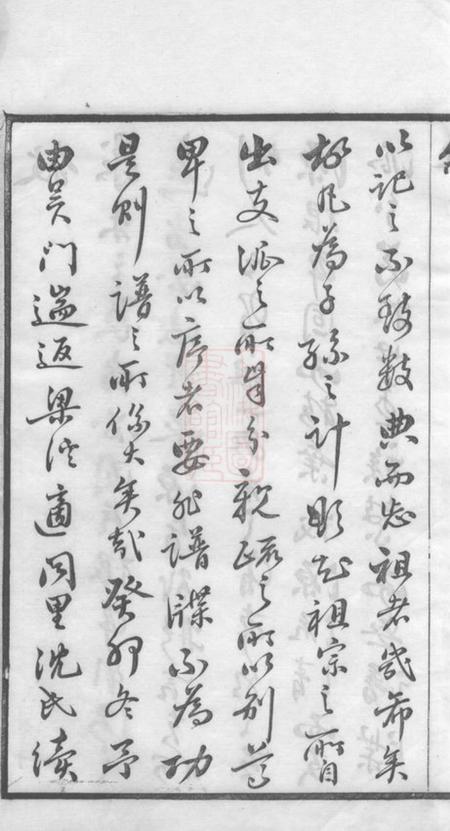 以記之不致數典而忘祖者幾希矣
故凡為子孫之計欲知祖宗之所自
出支派之所自分親疏之所以別尊
卑之所以序者要非譜牒不為功
是則譜之所係大矣哉癸卯冬予
由吳門遄返梁溪適同里沈氏續